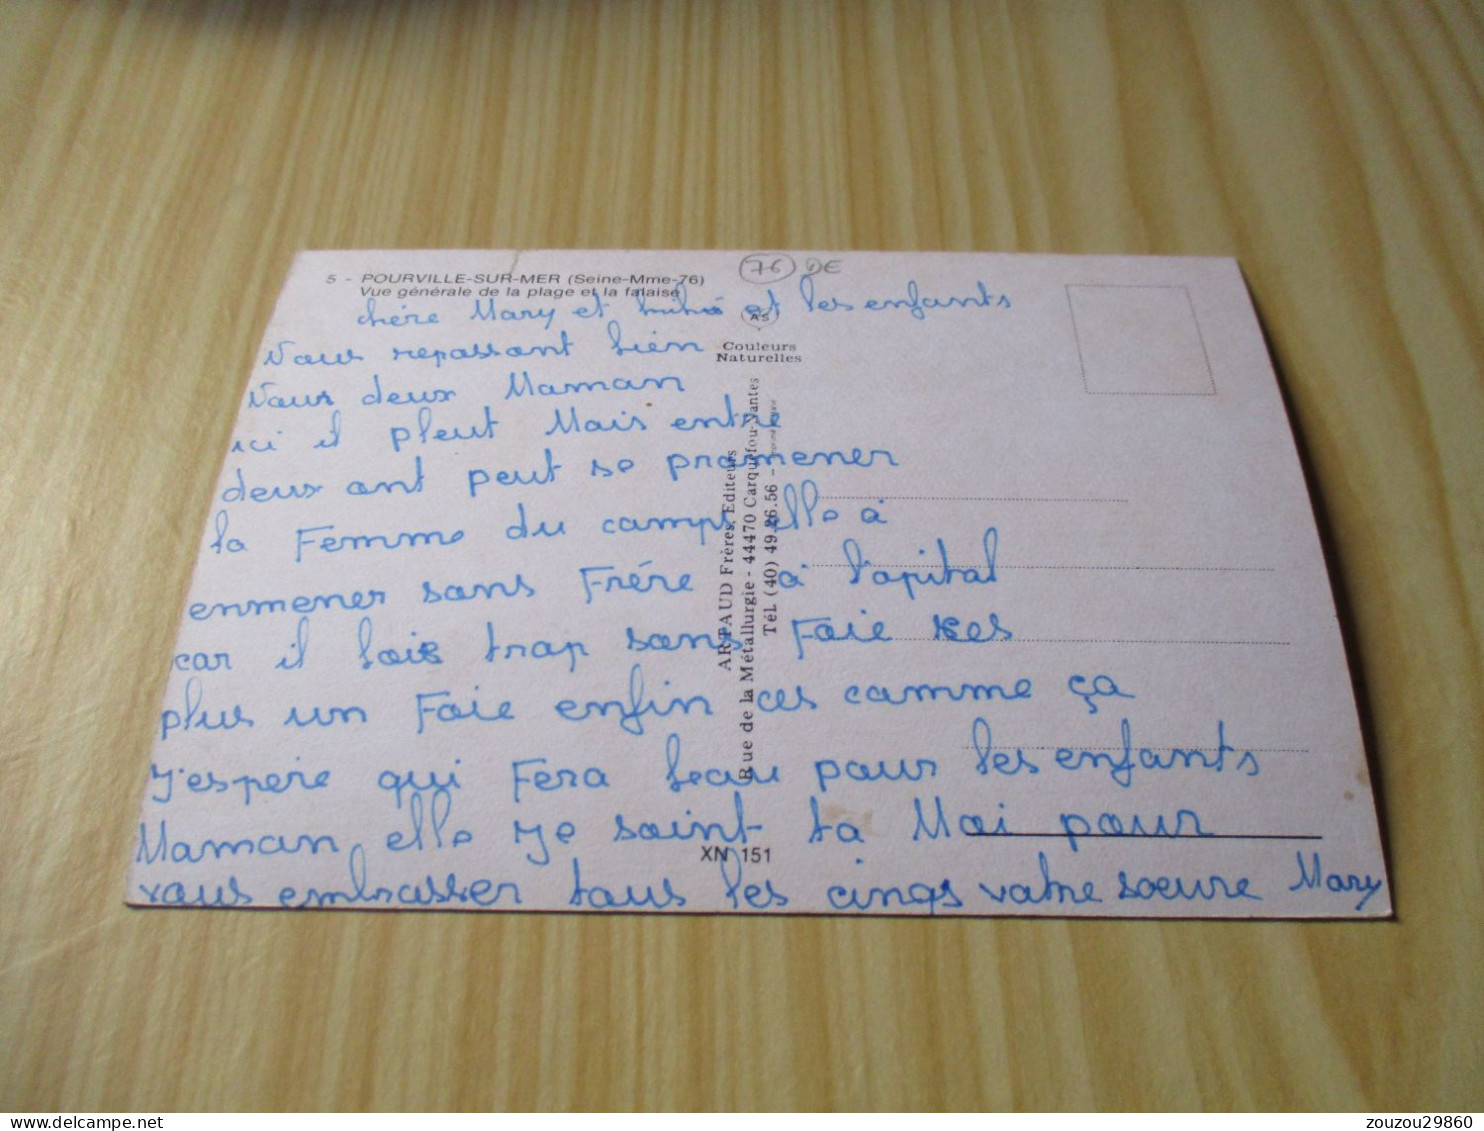 5 - POURVILLE-SUR-MER (Seine-Mme-76)
Vue générale de la plage et la falaise
76 DE
chère Mary et et les enfants
AS
Couleurs
Naturelles
Nous repassont bien
Nous deux Maman
ici il pleut Mais entre
deux ont peut se promener
la Femme du camps elle à
enmener sans Frére à l'opital
car il bois trop sans Foie kes
plus un Foie enfin ces comme ça
J'espére qui Fera beau pour les enfants
Maman elle Je saint ta Moi pour
vous embrasser tous les cinqs votre soeure Mary
ARTAUD Frères, Editeurs
Rue de la Métallurgie - 44470 Carquefou-Nantes
Tél. (40) 49.26.56 -
XN 151
zouzou29860